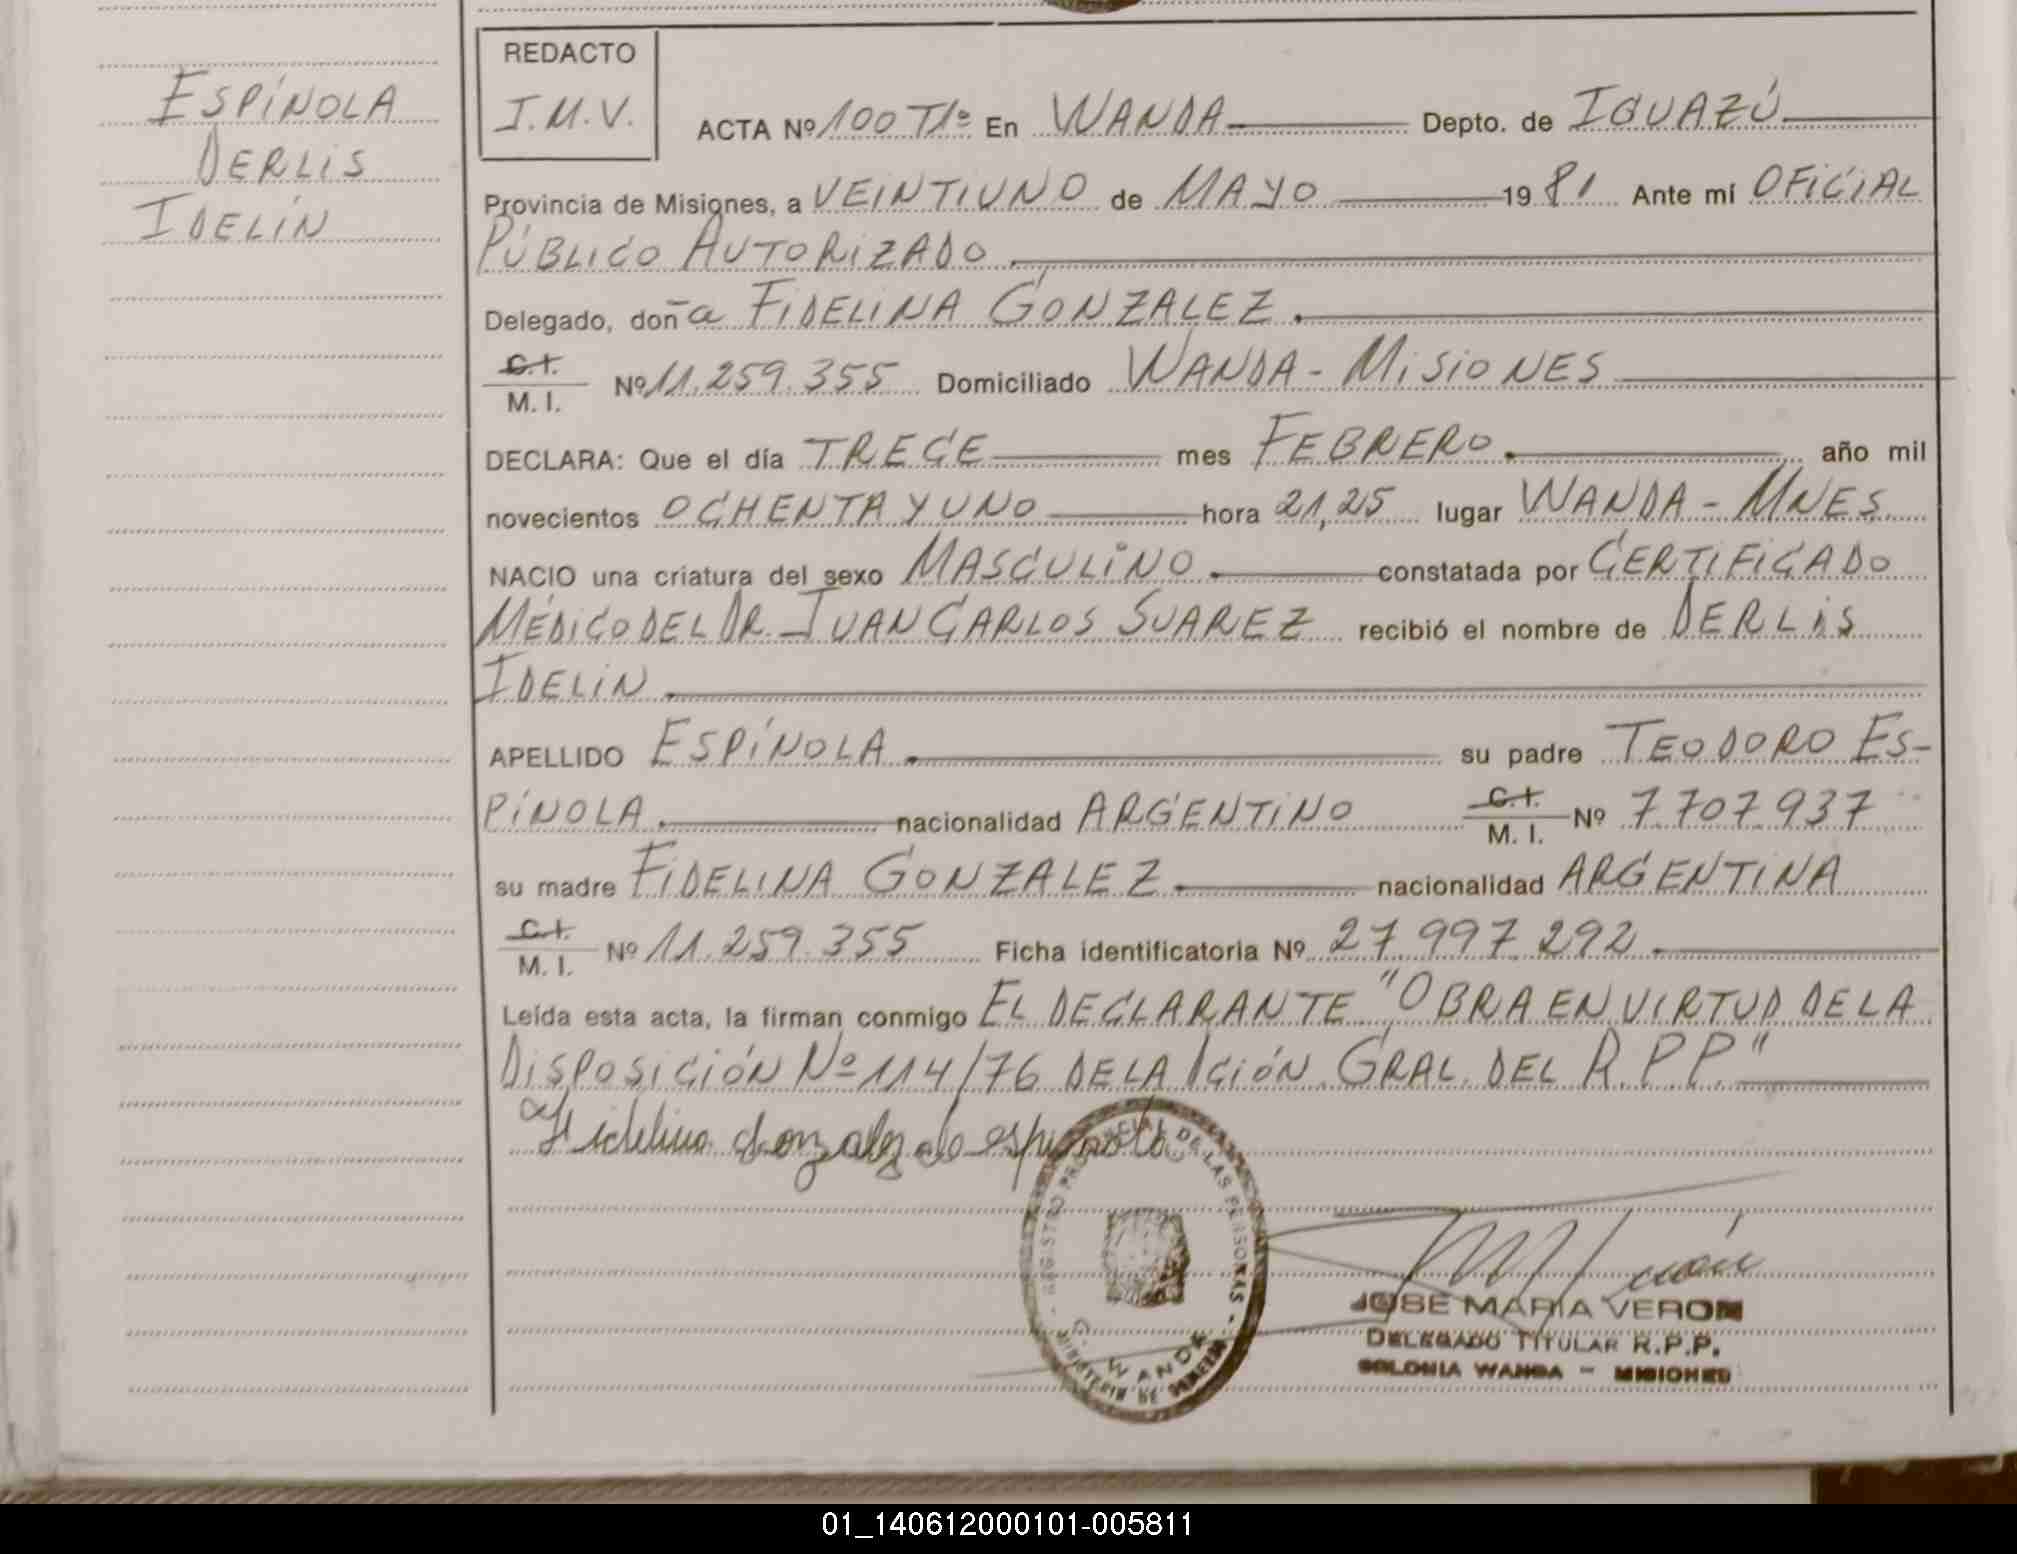 ESPÍNOLA
DERLIS
IDELÍN
REDACTO
I.M.V.
ACTA Nº 100 Tº 1º En WANDA Depto. de IGUAZÚ
Provincia de Misiones, a VEINTIUNO de MAYO 1981 Ante mí OFICIAL
PÚBLICO AUTORIZADO
Delegado, doña FIDELINA GONZALEZ
C.I. M. I. Nº 11.259.355 Domiciliado WANDA - MISIONES
DECLARA: Que el día TRECE mes FEBRERO año mil
novecientos OCHENTA Y UNO hora 21,25 lugar WANDA - MNES
NACIO una criatura del sexo MASCULINO constatada por CERTIFICADO
MÉDICO DEL DR. JUAN CARLOS SUAREZ recibió el nombre de DERLIS
IDELIN
APELLIDO ESPÍNOLA su padre TEODORO ES-
PÍNOLA nacionalidad ARGENTINO C.I. M. I. Nº 7.707.937
su madre FIDELINA GONZALEZ nacionalidad ARGENTINA
C.I. M. I. Nº 11.259.355 Ficha identificatoria Nº 27.997.292
Leída esta acta, la firman conmigo EL DECLARANTE "OBRA EN VIRTUD DE LA
DISPOSICIÓN Nº 114/76 DE LA DCIÓN. GRAL. DEL R.P.P."
Fidelina Gonzalez de espinola
REGISTRO PROVINCIAL DE LAS PERSONAS
C. WANDA
MINISTERIO DE GOBIERNO
JOSE MARIA VERON
DELEGADO TITULAR R.P.P.
COLONIA WANDA - MISIONES
01_140612000101-005811